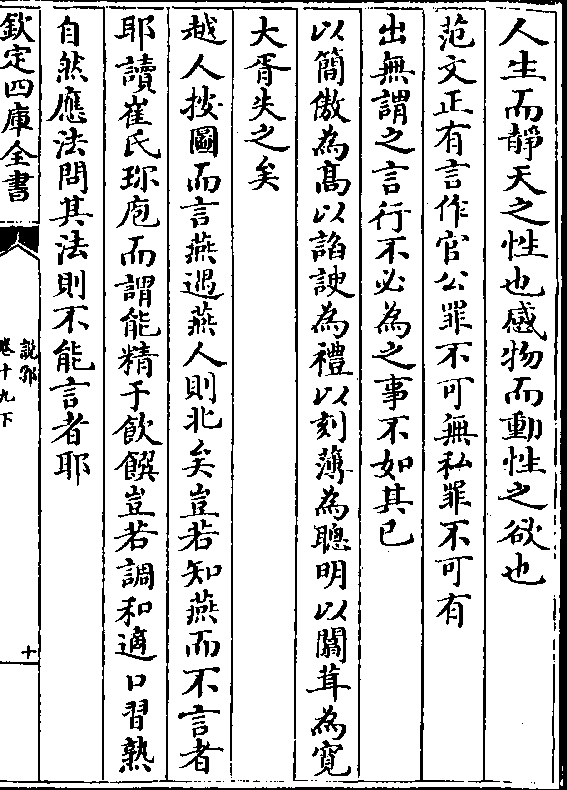 人生而靜天之性也感物而動性之欲也
范文正有言作官公罪不可無私罪不可有
出無謂之言行不必為之事不如其已
以簡傲為髙以諂諛為禮以刻薄為聰明以闒茸為寛
大胥失之矣
越人按圖而言燕遇燕人則北矣豈若知燕而不言者
耶讀崔氏珍庖而謂能精于飲饌豈若調和適口習熟
自然應法問其法則不能言者耶
欽定四庫全書
說郛
卷十九下
十